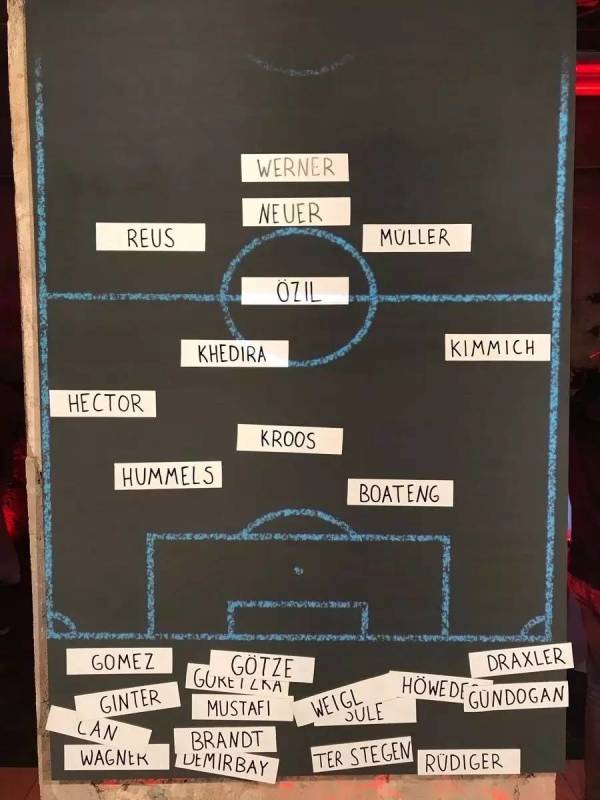 WERNER
NEUER
REUS
MÜLLER
ÖZIL
KHEDIRA
KIMMICH
HECTOR
KROOS
HUMMELS
BOATENG
GOMEZ
GÖTZE
DRAXLER
GORETZKA
HÖWEDES
GINTER
MUSTAFI
WEIGL
GÜNDOGAN
SÜLE
CAN
BRANDT
WAGNER
DEMIRBAY
TER STEGEN
RÜDIGER